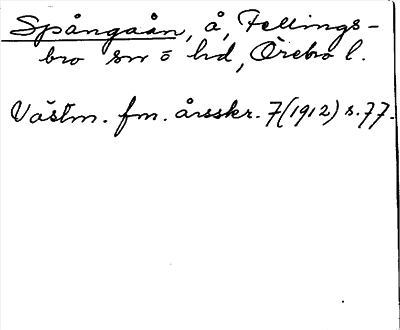 Spångaån, å, Fellings-
bro sn ö hd, Örebro l.
Västm. fm. årsskr. 7(1912) s.77.